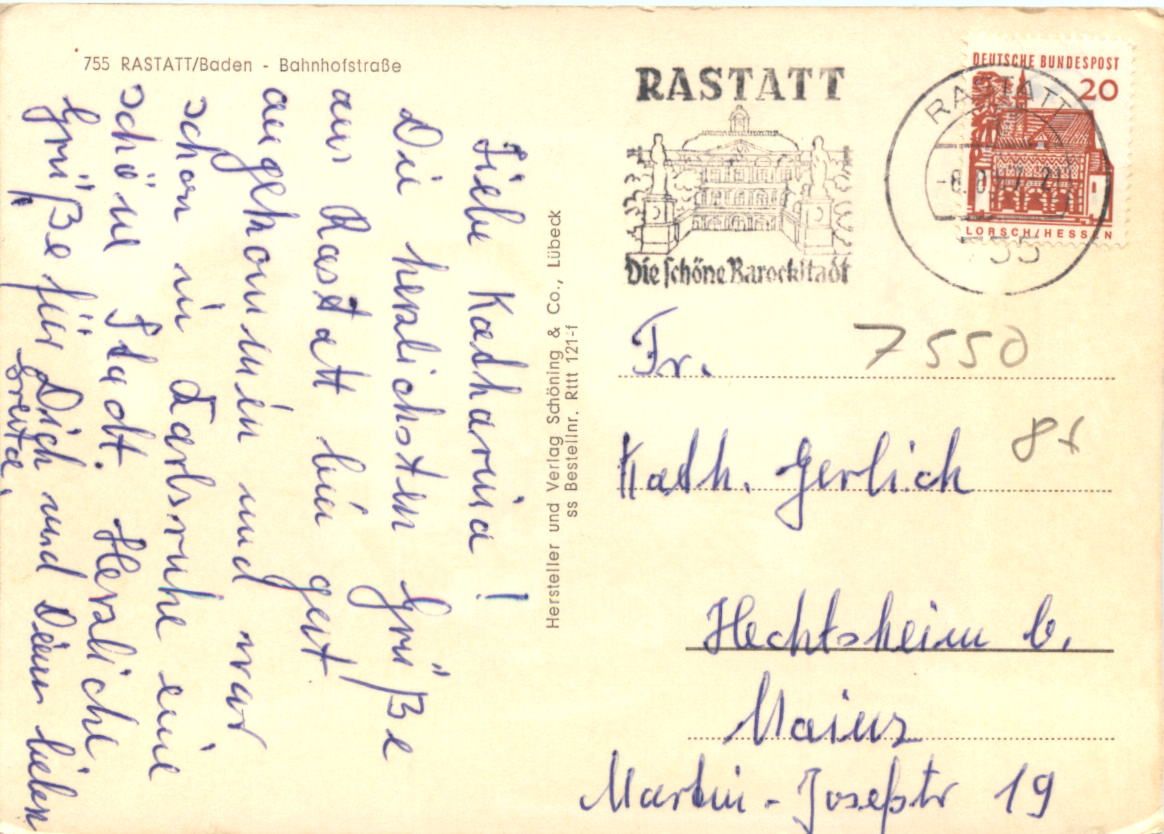 755 RASTATT/Baden - Bahnhofstraße
Liebe Katharina!
Die herzlichsten Grüße
aus Rastatt bin gest
angekommen und war
schon in Karlsruhe eine
schöne Stadt. Herzliche
Grüße für Dich und Deine lieben
Hersteller und Verlag Schöning & Co., Lübeck
ss Bestellnr. Rttt 121-f
RASTATT
Die schöne Barockstadt
DEUTSCHE BUNDESPOST
20
LORSCH/HESSEN
RASTATT
755
7550
81
Fr.
Kath. Gerlich
Hechtsheim b.
Mainz
Martin-Josefstr 19